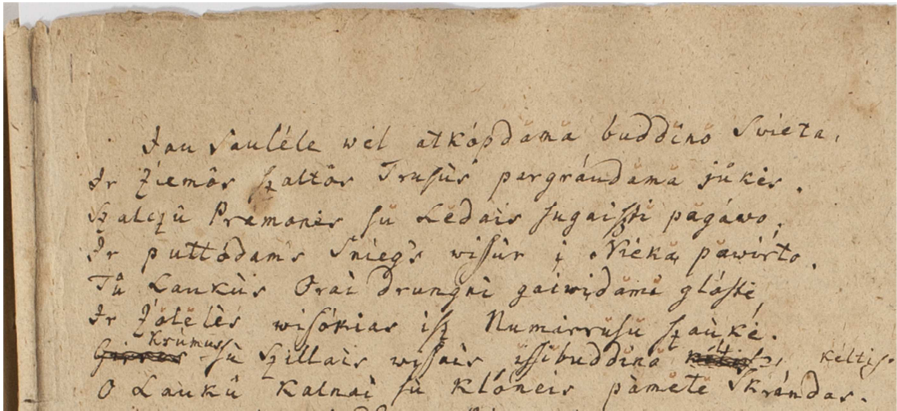 Jau Sauléle wėl atkópdămă buddĭnŏ Svieta,
Ir Ziemôs szaltôs Trusùs pargráudama jůkės.
Szalczû Prămonės sù Lĕdais sugaiszti pagáwo,
Ir puttódams Sniegs wissùr į Nieką păwirto.
Tů Laukùs Orai drungni gaiwįdami glóstė,
Ir Zólelès wisókias isz Numirrusû szaukė.
Krumus sù Szillais wissais issĭbuddĭnŏ kėltis.
O Laukû Kalnai sù Klóneis pàmetė Skrándas.